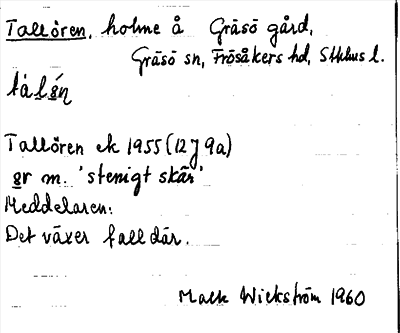 Tallören, holme å Gräsö gård,
Gräsö sn, Frösåkers hd, Sthlms l.
Tallören ek 1955 (12J 9a)
ör m. 'stenigt skär'
Meddelaren:
Det växer tall där.
Mats Wickström 1960